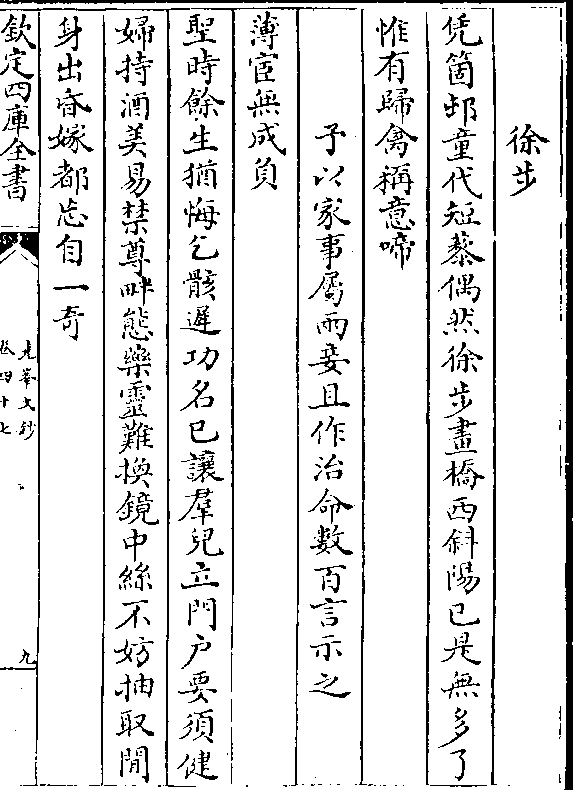 徐步
凭箇邨童代短藜偶然徐步畫橋西斜陽已是無多了
惟有歸禽稱意啼
予以家事屬兩妾且作治命數百言示之
薄宦無成負
聖時餘生猶悔乞骸遲功名已讓羣兒立門户要須健
婦持酒美易禁尊畔態藥靈難換鏡中絲不妨抽取閒
身出昏嫁都忘自一奇
欽定四庫全書
堯峯文鈔
卷四十七
九